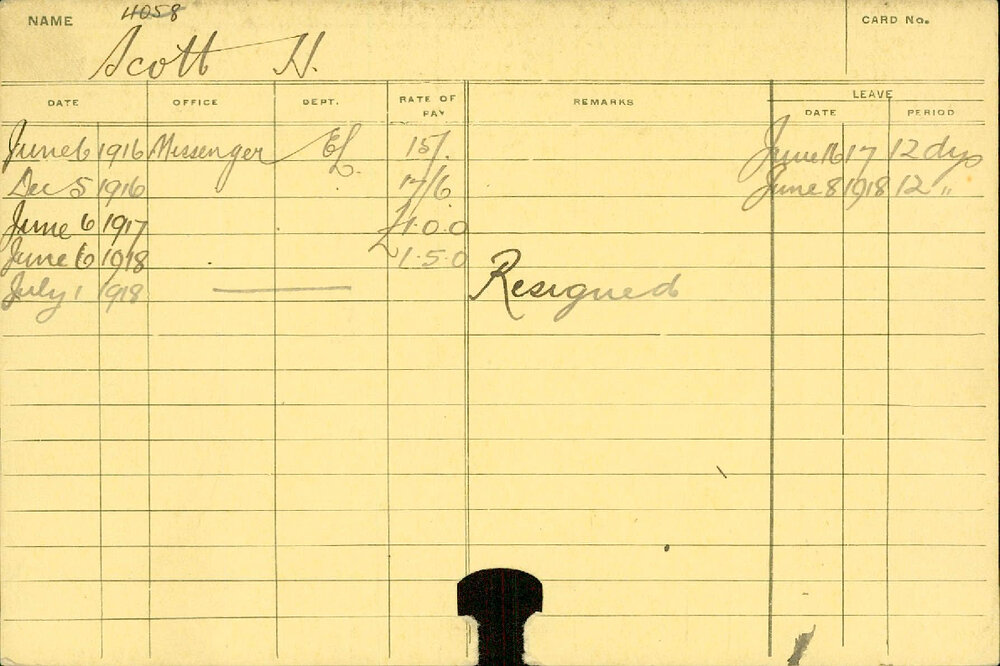 NAME 4058 CARD No.
Scott H.
DATE OFFICE DEPT. RATE OF PAY REMARKS LEAVE
DATE PERIOD
June 6 1916 Messenger EL. 15/. June 16 17 12 dys
Dec 5 1916 17/6. June 8 1918 12 "
June 6 1917 £1.0.0
June 6 1918 £1.5.0
July 1 1918 Resigned